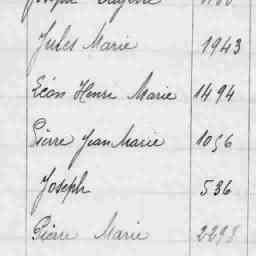 Joseph
Jules Marie 1943
Léon Henri Marie 1494
Pierre Jean Marie 1056
Joseph 536
Pierre Marie 2298